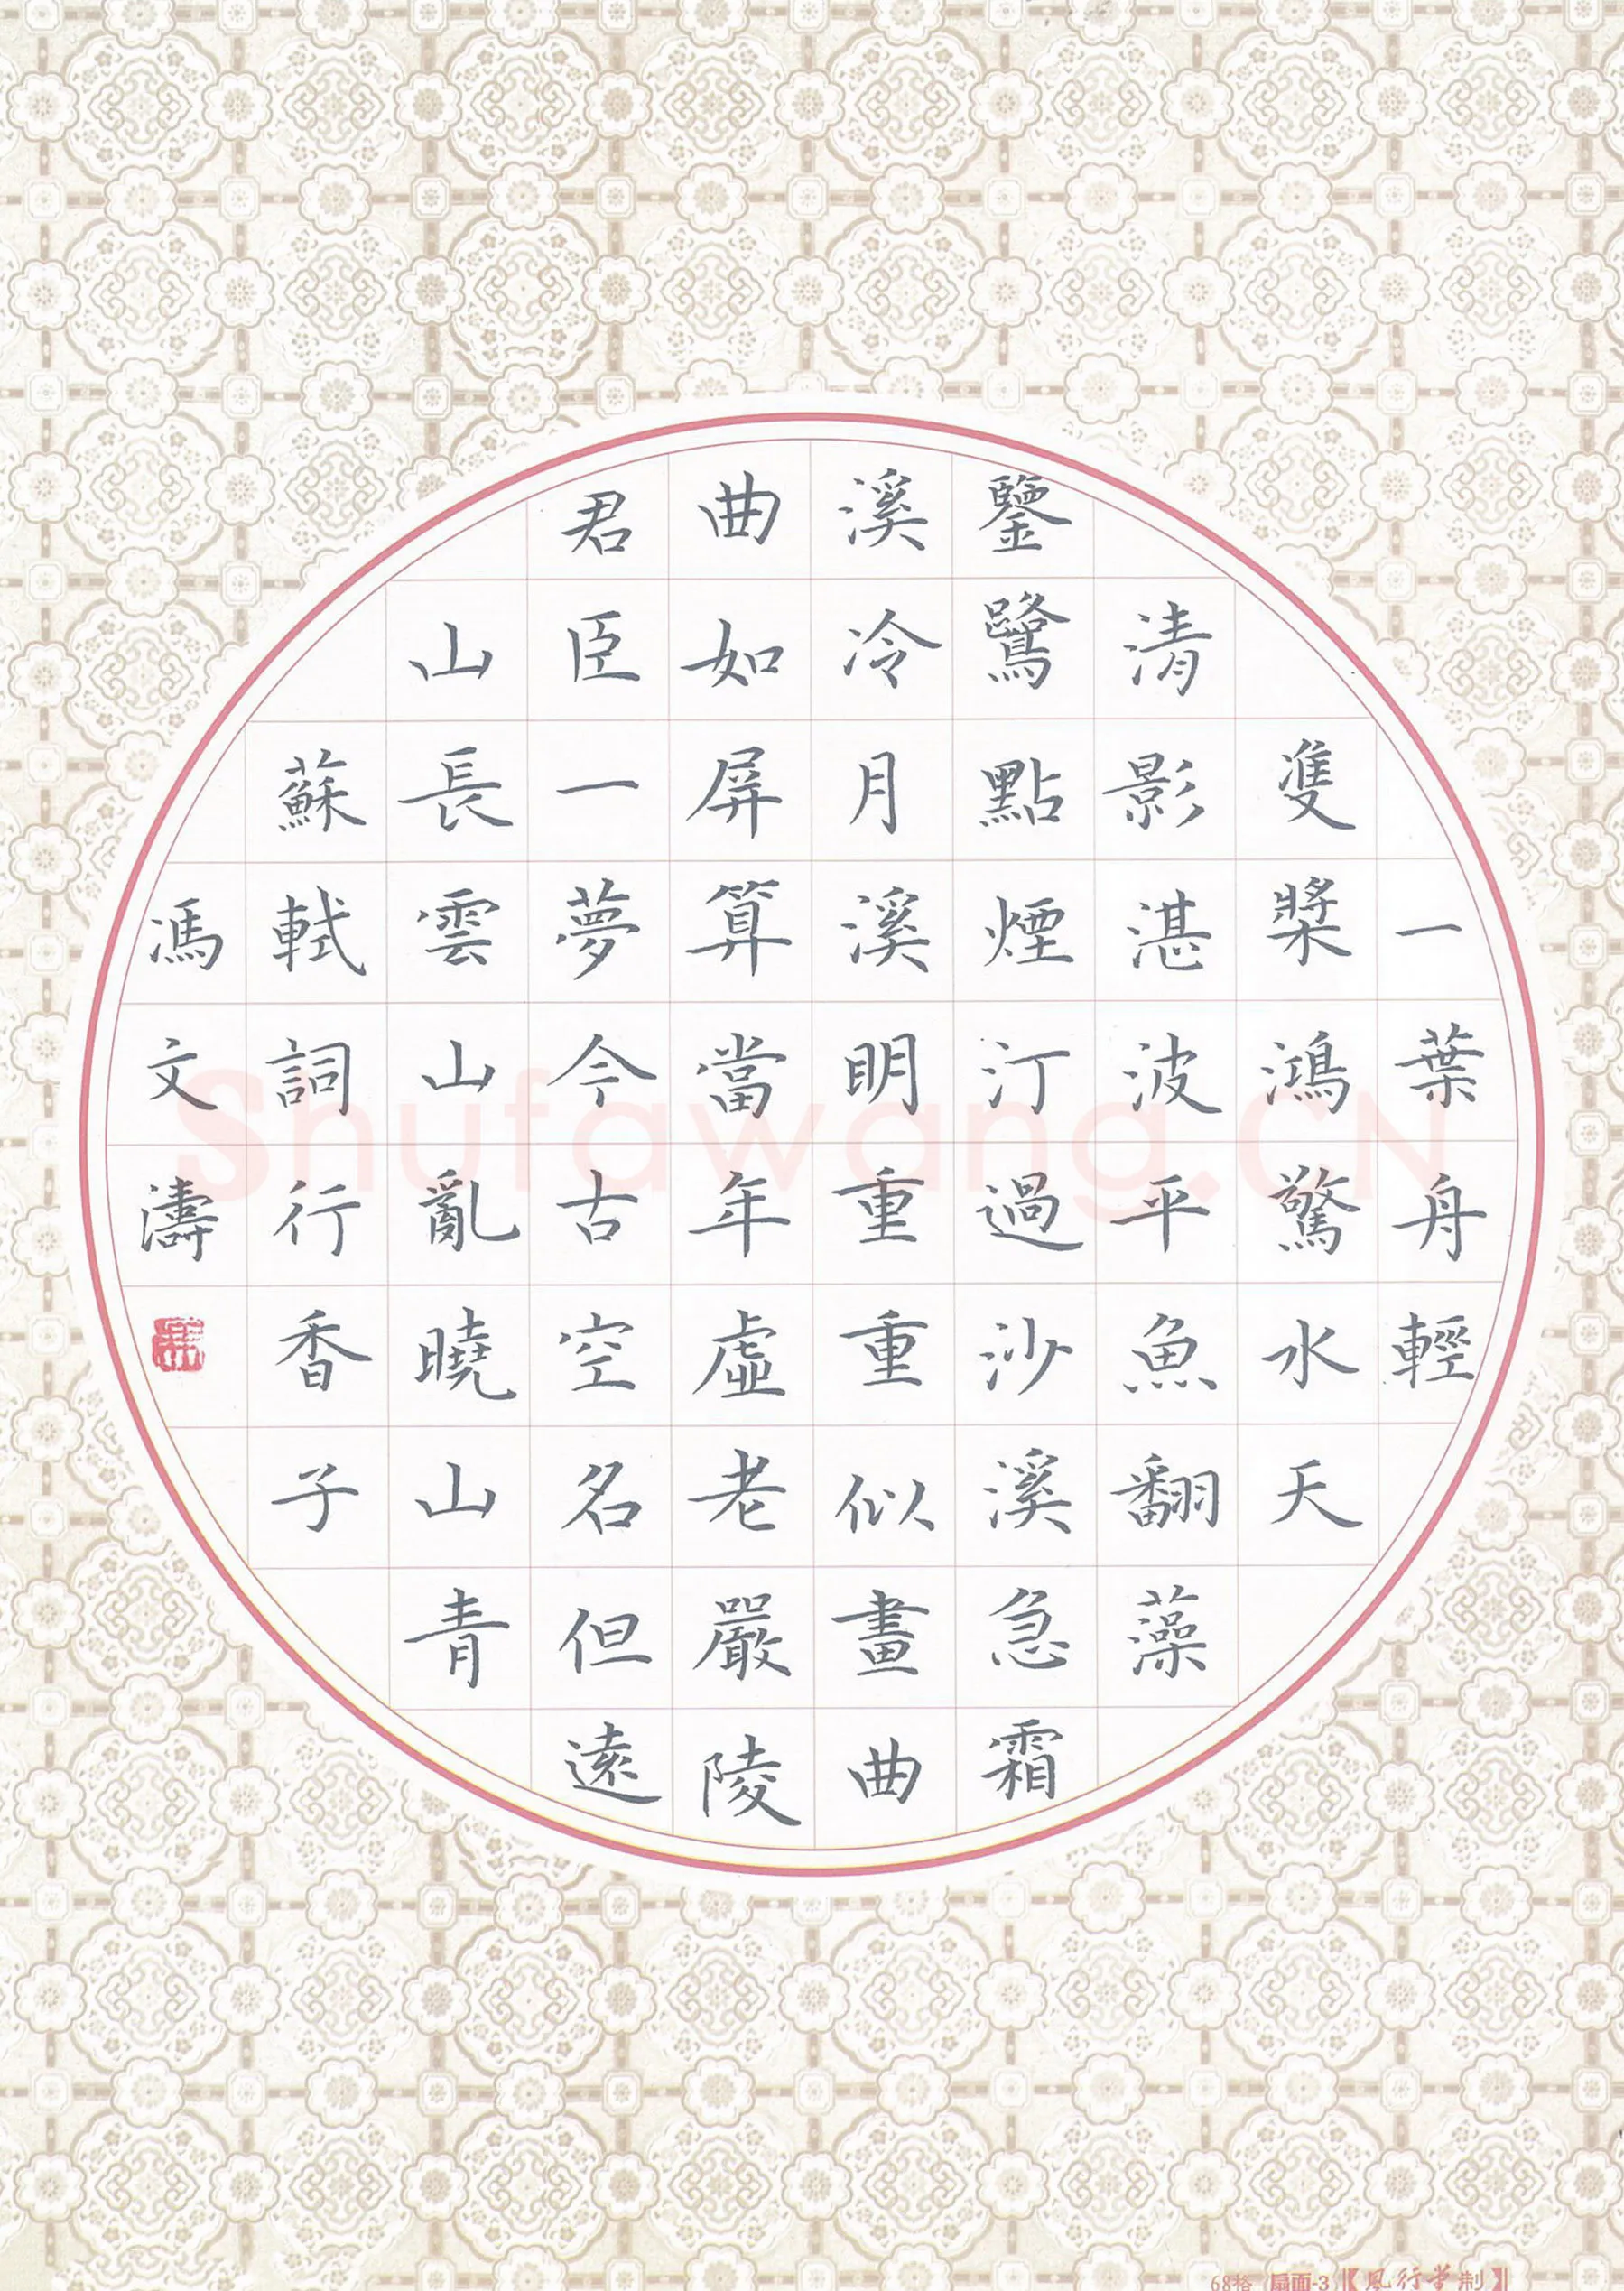 一葉舟輕
隻槳鴻驚水天
清影湛波平魚翻藻
鑒鷺點煙汀過沙溪急霜
溪冷月溪明重重似畫曲
曲如屏算當年虛老嚴陵
君臣一夢今古空名但遠
山長雲山亂曉山青
蘇軾詞行香子
馮文濤
Shufawang.CN
68格 扇面-3